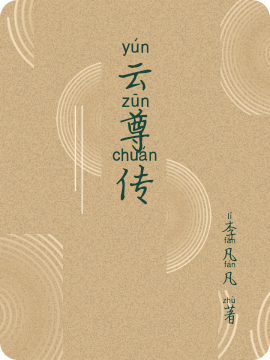 yún
云
zūn
尊
chuán
传
lǐ
李
fán
凡
fán
凡
zhù
著